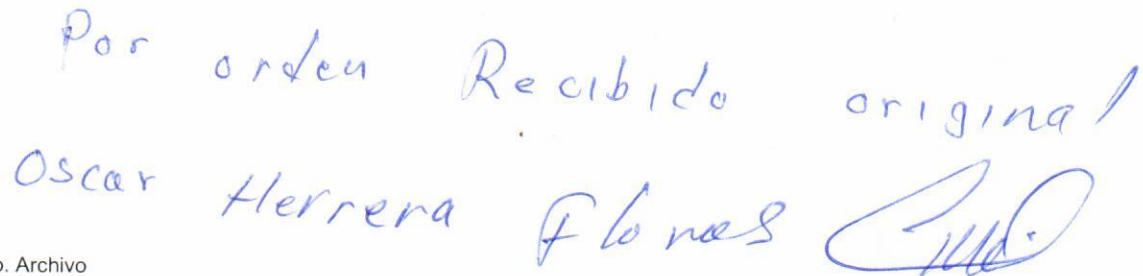 Por orden Recibido original
Oscar Herrera Flores
o. Archivo